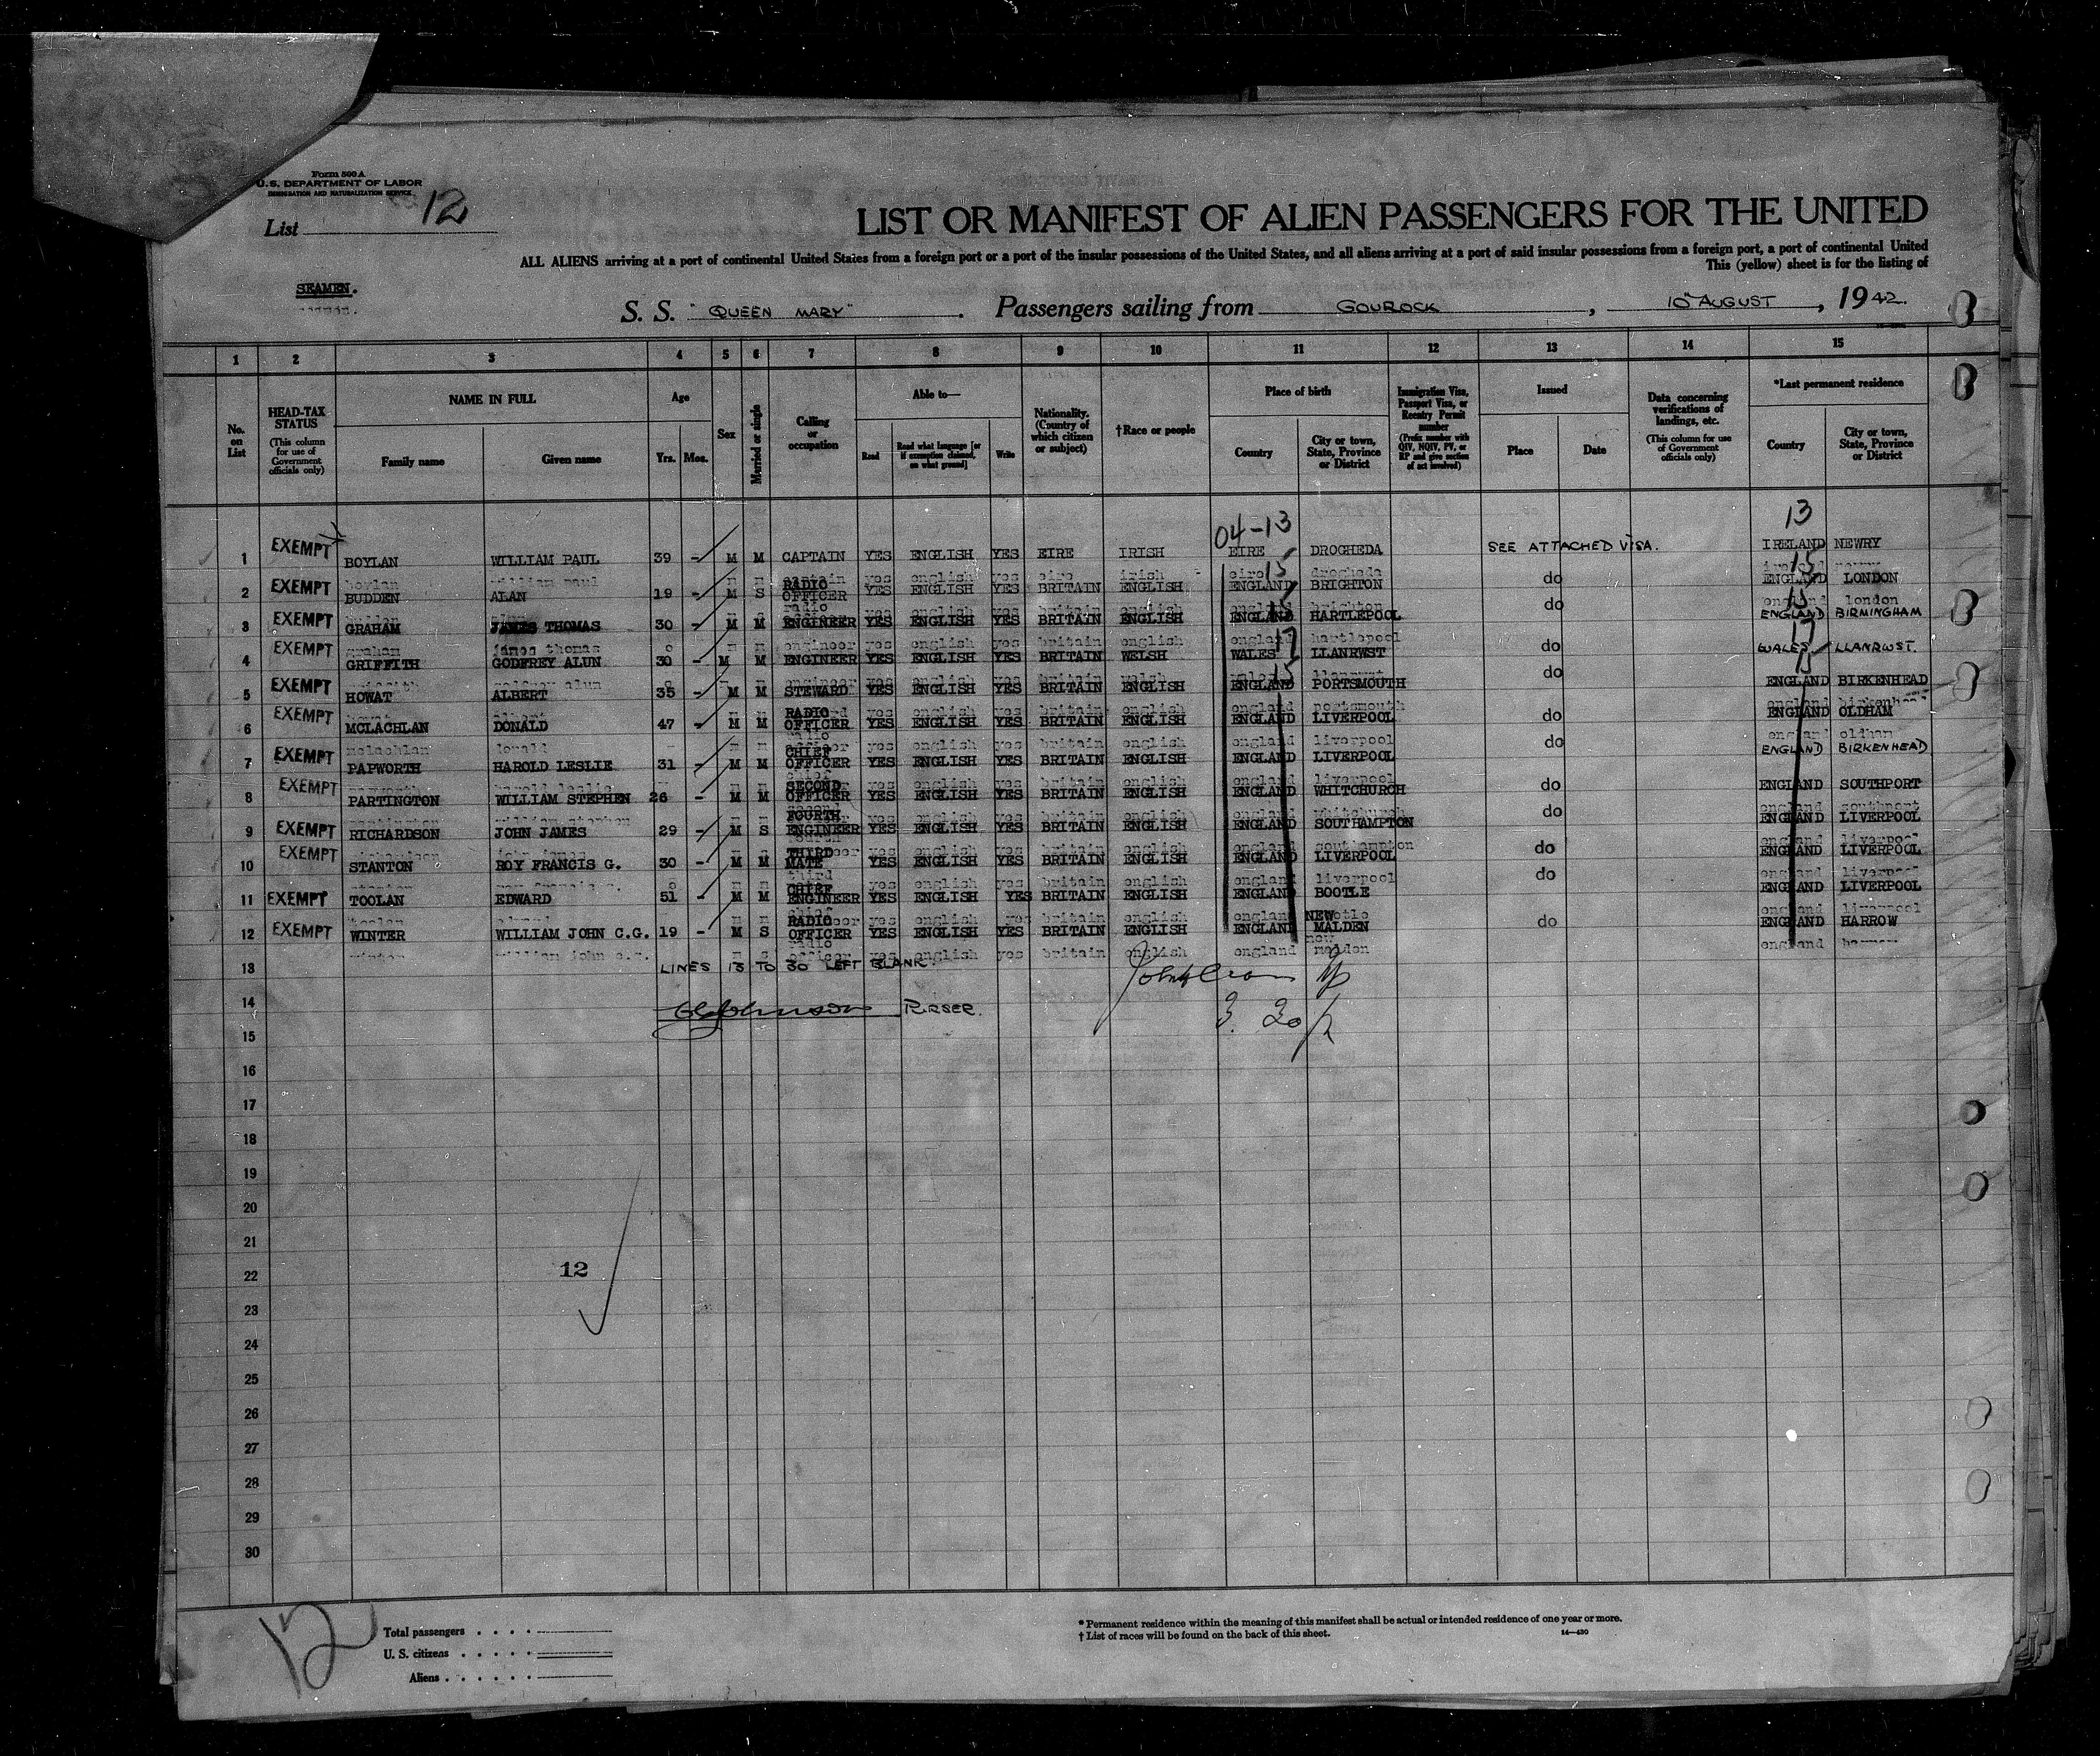 Form 500 A
U.S. DEPARTMENT OF LABOR
IMMIGRATION AND NATURALIZATION SERVICE
List 12
LIST OR MANIFEST OF ALIEN PASSENGERS FOR THE UNITED
ALL ALIENS arriving at a port of continental United States from a foreign port or a port of the insular possessions of the United States, and all aliens arriving at a port of said insular possessions from a foreign port, a port of continental United
This (yellow) sheet is for the listing of
SEAMEN.
S. S. "QUEEN MARY". Passengers sailing from GOUROCK, 10 AUGUST, 1942.
1 2 3 4 5 6 7 8 9 10 11 12 13 14 15
No. on List
HEAD-TAX STATUS (This column for use of Government officials only)
NAME IN FULL Family name Given name
Age Yrs. Mos.
Sex
Married or single
Calling or occupation
Able to— Read Read what language [or if exemption claimed, on what ground] Write
Nationality. (Country of which citizen or subject)
†Race or people
Place of birth Country City or town, State, Province or District
Immigration Visa, Passport Visa, or Reentry Permit number (Prefix number with QIV, NQIV, PV, or RP and give section of act involved)
Issued Place Date
Data concerning verifications of landings, etc. (This column for use of Government officials only)
*Last permanent residence Country City or town, State, Province or District
04-13 13
1 EXEMPT BOYLAN WILLIAM PAUL 39 - M M CAPTAIN YES ENGLISH YES EIRE IRISH EIRE DROGHEDA SEE ATTACHED VISA. IRELAND NEWRY
15 15
2 EXEMPT BUDDEN ALAN 19 - M S RADIO OFFICER YES ENGLISH YES BRITAIN ENGLISH ENGLAND BRIGHTON do ENGLAND LONDON
15 15
3 EXEMPT GRAHAM JAMES THOMAS 30 - M M ENGINEER YES ENGLISH YES BRITAIN ENGLISH ENGLAND HARTLEPOOL do ENGLAND BIRMINGHAM
17 17
4 EXEMPT GRIFFITH GODFREY ALUN 30 - M M ENGINEER YES ENGLISH YES BRITAIN WELSH WALES LLANRWST do WALES LLANRWST.
15 15
5 EXEMPT HOWAT ALBERT 35 - M M STEWARD YES ENGLISH YES BRITAIN ENGLISH ENGLAND PORTSMOUTH do ENGLAND BIRKENHEAD
6 EXEMPT MCLACHLAN DONALD 47 - M M RADIO OFFICER YES ENGLISH YES BRITAIN ENGLISH ENGLAND LIVERPOOL do ENGLAND OLDHAM
7 EXEMPT PAPWORTH HAROLD LESLIE 31 - M M CHIEF OFFICER YES ENGLISH YES BRITAIN ENGLISH ENGLAND LIVERPOOL do ENGLAND BIRKENHEAD
8 EXEMPT PARTINGTON WILLIAM STEPHEN 26 - M M SECOND OFFICER YES ENGLISH YES BRITAIN ENGLISH ENGLAND WHITCHURCH do ENGLAND SOUTHPORT
9 EXEMPT RICHARDSON JOHN JAMES 29 - M S FOURTH ENGINEER YES ENGLISH YES BRITAIN ENGLISH ENGLAND SOUTHAMPTON do ENGLAND LIVERPOOL
10 EXEMPT STANTON ROY FRANCIS G. 30 - M M THIRD MATE YES ENGLISH YES BRITAIN ENGLISH ENGLAND LIVERPOOL do ENGLAND LIVERPOOL
11 EXEMPT TOOLAN EDWARD 51 - M M CHIEF ENGINEER YES ENGLISH YES BRITAIN ENGLISH ENGLAND BOOTLE do ENGLAND LIVERPOOL
12 EXEMPT WINTER WILLIAM JOHN C.G. 19 - M S RADIO OFFICER YES ENGLISH YES BRITAIN ENGLISH ENGLAND NEW MALDEN do ENGLAND HARROW
13 LINES 13 TO 30 LEFT BLANK.
14 Johnson PURSER.
15
16
17
18
19
20
21
22 12
23
24
25
26
27
28
29
30
12
Total passengers
U. S. citizens
Aliens
* Permanent residence within the meaning of this manifest shall be actual or intended residence of one year or more.
† List of races will be found on the back of this sheet.
14—430